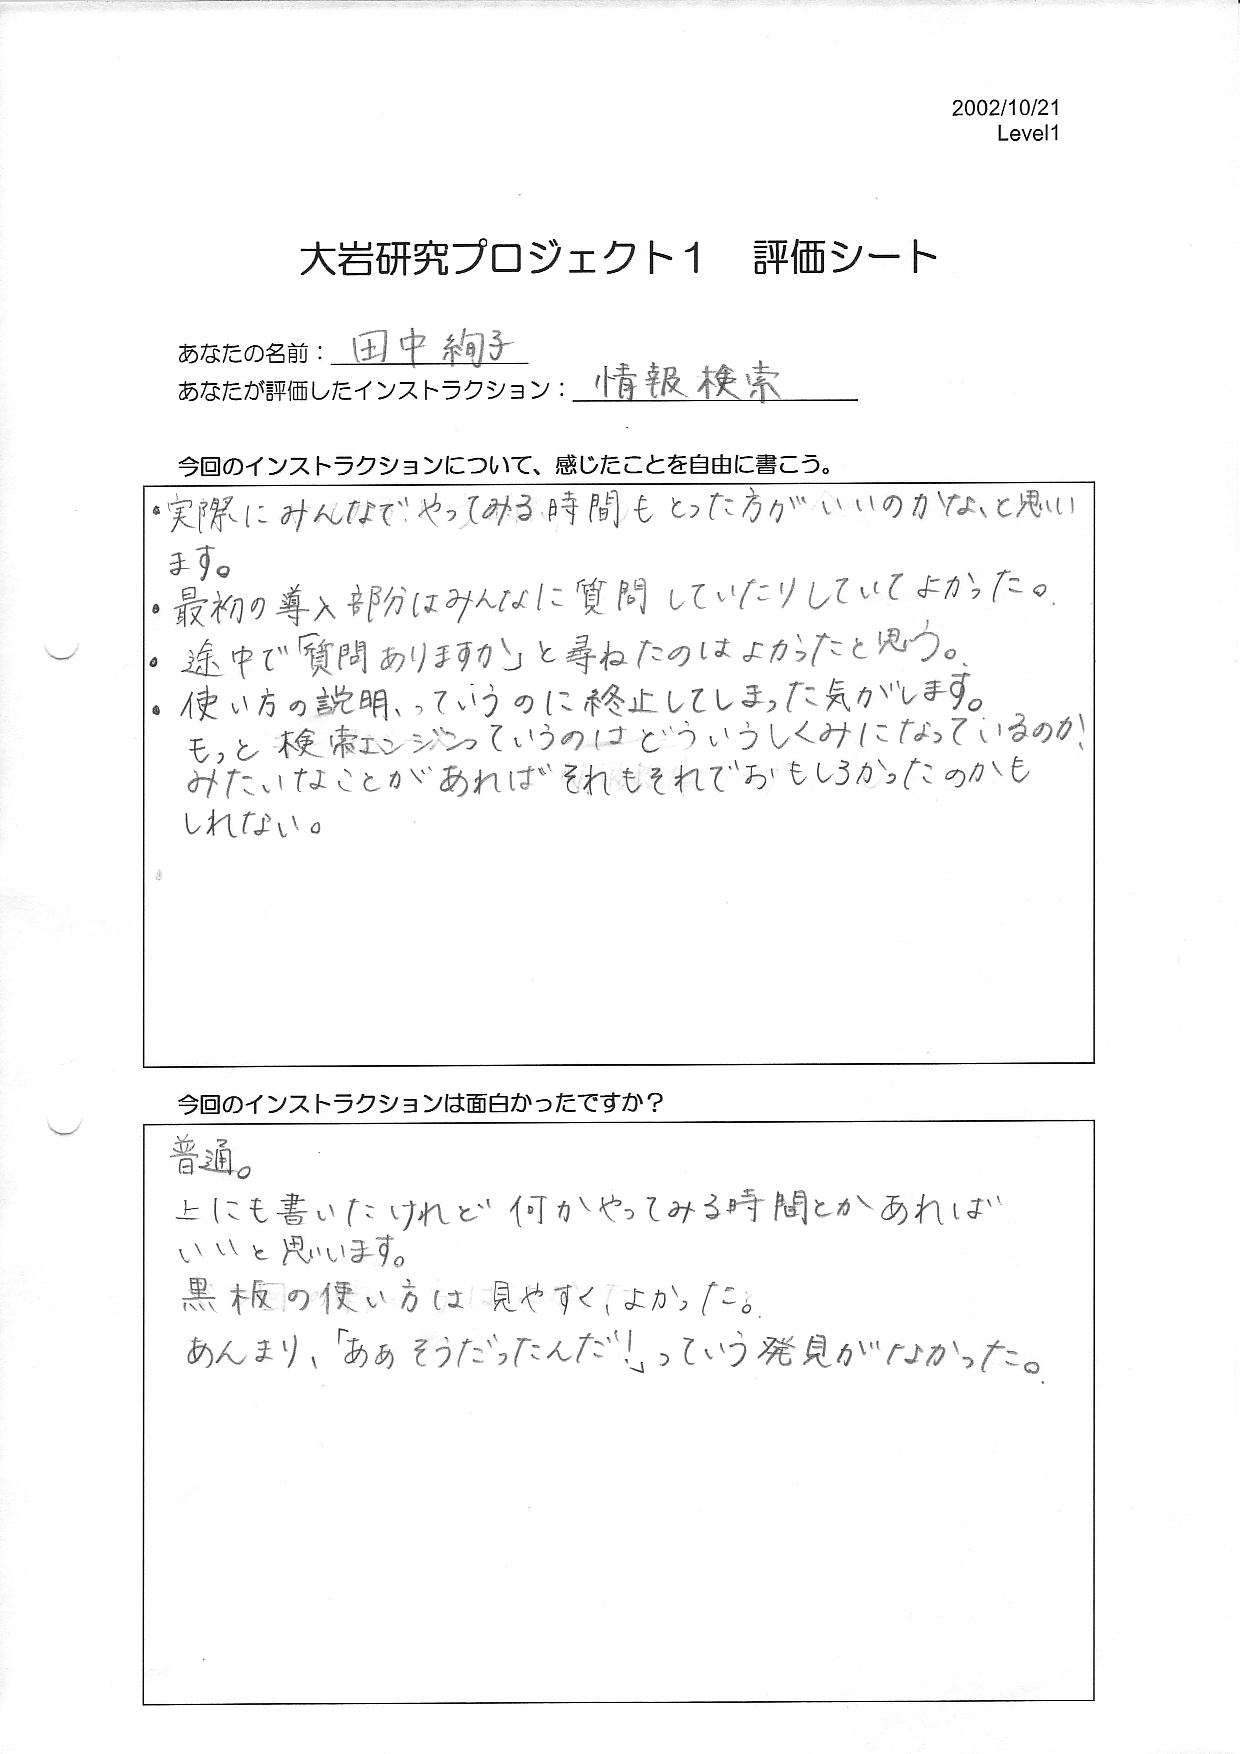 2002/10/21
Level1
大岩研究プロジェクト１　評価シート
あなたの名前：田中絢子
あなたが評価したインストラクション：情報検索
今回のインストラクションについて、感じたことを自由に書こう。
・実際にみんなでやってみる時間もとった方がいいのかな、と思い
ます。
・最初の導入部分はみんなに質問していたりしていてよかった。
・途中で「質問ありますか」と尋ねたのはよかったと思う。
・使い方の説明、っていうのに終止してしまった気がします。
もっと検索エンジンっていうのはどういうしくみになっているのか！
みたいなことがあればそれもそれでおもしろかったのかも
しれない。
今回のインストラクションは面白かったですか？
普通。
上にも書いたけれど何かやってみる時間とかあれば
いいと思います。
黒板の使い方は見やすく、よかった。
あんまり、「あぁそうだったんだ！」っていう発見がなかった。